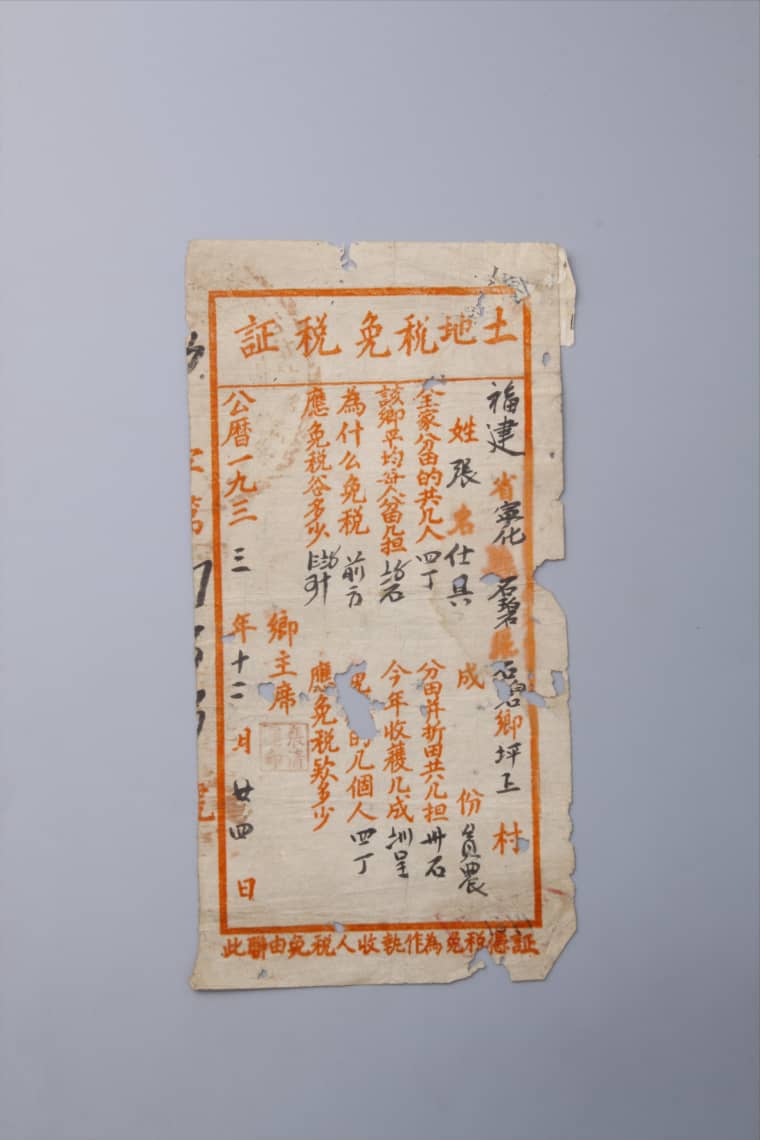 土地税免税証
福建省寧化縣石碧區石碧鄉坪上村
姓張名仕具 成份貧農
全家分田的共几人四丁 分田并折田共几担卅石
該鄉平均每人分田几担 今年收獲几成
為什么免税前方 的几個人四丁
應免税谷多少 應免税欵多少
鄉主席
公曆一九三三年十二月廿四日
字第 號
此聯由免税人收執作為免税憑証